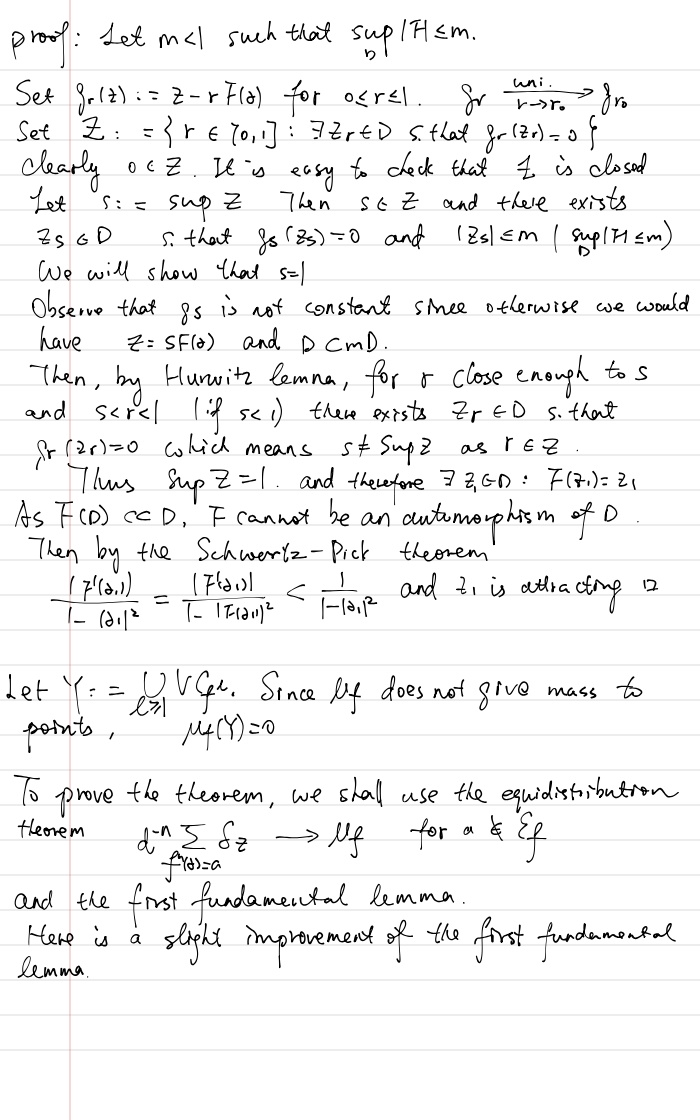 proof: Let m<1 such that sup_D |F| ≤ m.
Set g_r(z) := z - r F(z) for 0≤r≤1. g_r uni. → r→r_0 g_{r_0}
Set Z := { r ∈ [0,1] : ∃ z_r ∈ D s. that g_r(z_r) = 0 }
Clearly 0 ∈ Z. It is easy to check that Z is closed
Let s := sup Z Then s ∈ Z and there exists
z_s ∈ D s. that g_s(z_s)=0 and |z_s| ≤ m ( sup_D |F| ≤ m)
We will show that s=1
Observe that g_s is not constant since otherwise we would
have z = sF(z) and D ⊂ mD.
Then, by Hurwitz lemma, for r close enough to s
and s<r<1 (if s<1) there exists z_r ∈ D s. that
g_r(z_r)=0 which means s ≠ sup Z as r ∈ Z.
Thus sup Z = 1. and therefore ∃ z_1 ∈ D : F(z_1) = z_1
As F(D) ⊂⊂ D, F cannot be an automorphism of D.
Then by the Schwartz-Pick theorem
|F'(z_1)| / 1-|z_1|² = |F'(z_1)| / 1-|F(z_1)|² < 1 / 1-|z_1|² and z_1 is attracting □
Let Y := ∪_{l≥1} VC_{f^l}. Since μ_f does not give mass to
points, μ_f(Y)=0
To prove the theorem, we shall use the equidistribution
theorem d^{-n} Σ_{f^n(z)=a} δ_z → μ_f for a ∉ ℰ_f
and the first fundamental lemma.
Here is a slight improvement of the first fundamental
lemma.